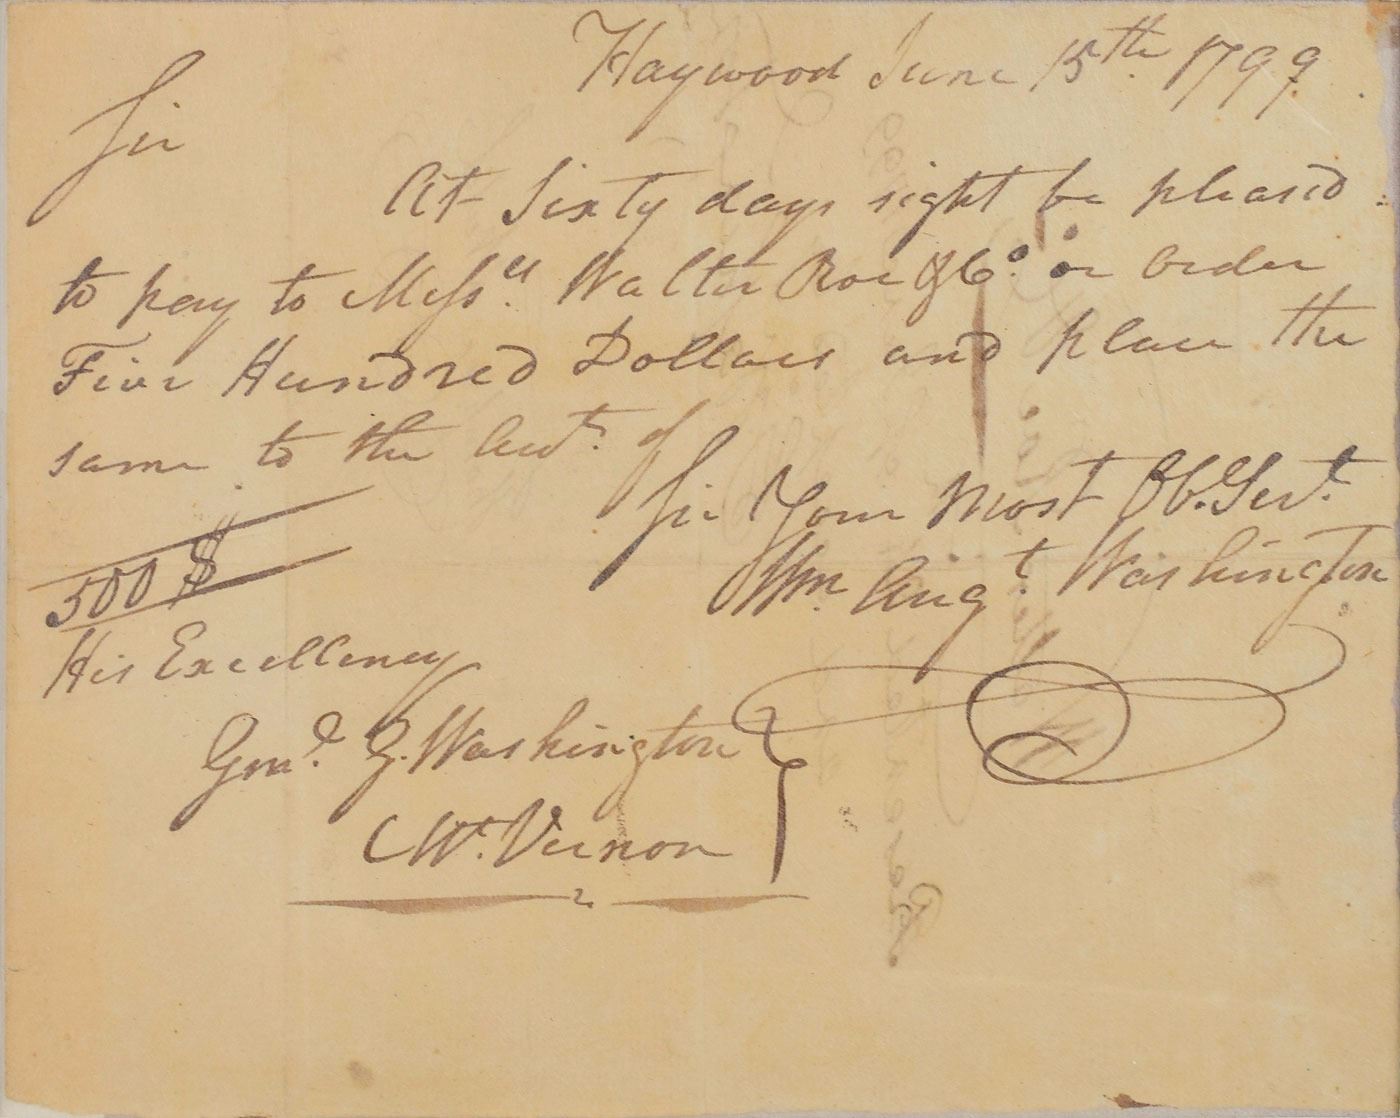 Haywood June 15th 1799
Sir
At Sixty days sight be pleas'd
to pay to Messrs. Walter Roe & Co. or order
Five Hundred Dollars and place the
same to the acct. of
Sir Your Most Ob. Servt.
Wm. Augt. Washington
500 $
His Excellency
Genl. G. Washington
Mt. Vernon